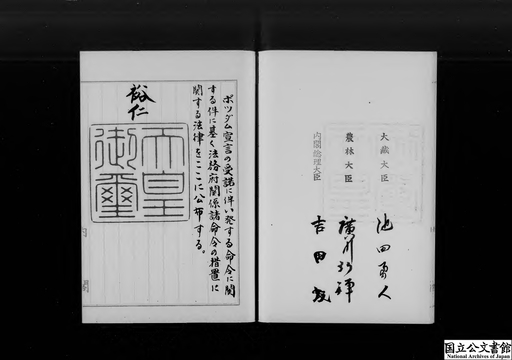 ポツダム宣言の受諾に伴い発する命令に関
する件に基く法務府関係諸命令の措置に
関する法律をここに公布する。
裕仁
天皇
御璽
大蔵大臣 池田勇人
農林大臣 廣川弘禅
内閣総理大臣 吉田茂
国立公文書館
National Archives of Japan